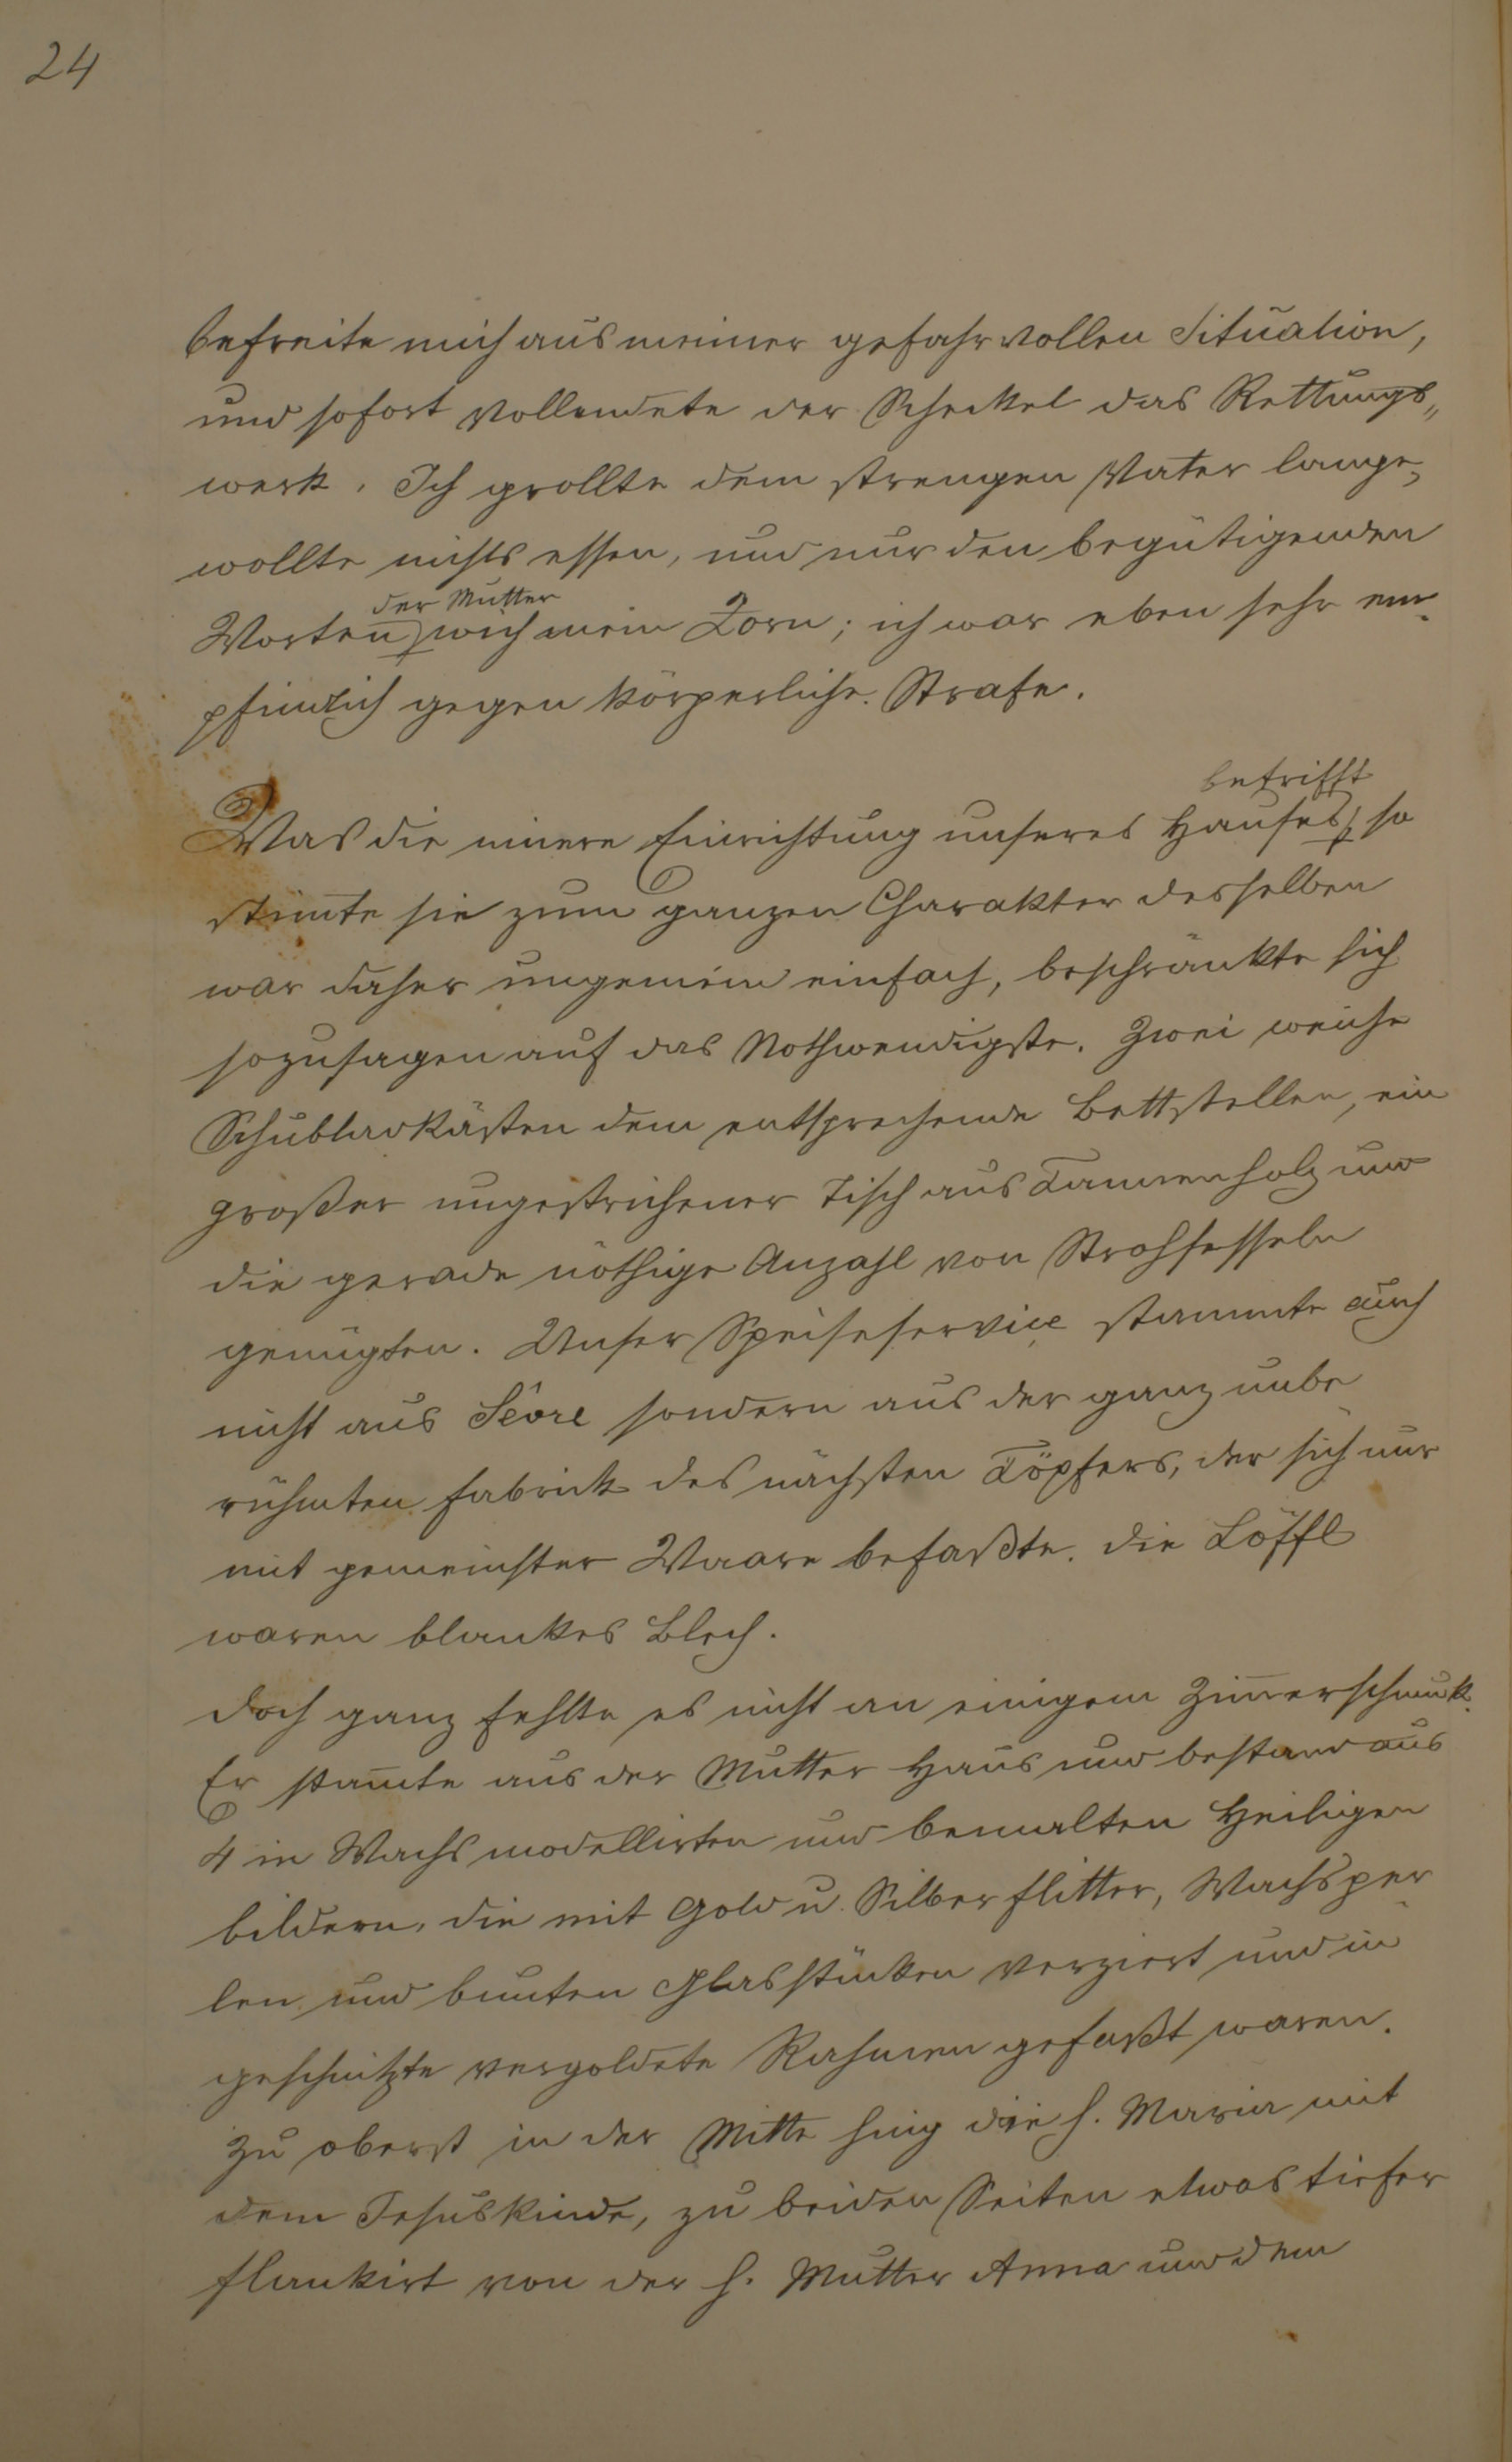 24
befreite mich aus meiner gefahrvollen Situation,
und sofort vollendete der Scheckel das Rettungs„
werk. Ich grollte dem strengen Vater lange,
wollte nichts essen, und nur den begütigenden
der Mutter
Worten wich mein Zorn; ich war eben sehr em-
pfindlich gegen körperliche Strafe.
betrifft
Was die innere Einrichtung unseres Hauses, so
stim̄te sie zum ganzen Charakter desselben
war daher ungemein einfach, beschränkte sich
sozusagen auf das Nothwendigste. Zwei weiche
Schubladkästen dem entsprechende Bettstellen, ein
großer ungestrichener Tisch aus Tannenholz und
die gerade nöthige Anzahl von Strohsesseln
genügten. Unser Speiseservice stammte auch
nicht aus Sêvre sondern aus der ganz unbe
rühmten Fabrick des nächsten Töpfers, der sich nur
mit gemeinster Waare befaßte. Die Löffl
waren blankes Blech.
Doch ganz fehlte es nicht an einigem Zim̄erschmuk.
Er stam̄te aus der Mutter Haus und bestand aus
4 in Wachs modellirten und bemalten Heiligen
bildern, die mit Gold u. Silberflitter, Wachsper
len und bunten Glasstücken verziert und in
geschnitzte vergoldete Rahmen gefaßt waren.
Zu oberst in der Mitte hing die h. Maria mit
dem Jesuskinde, zu beiden Seiten etwas tiefer
flankirt von der h. Mutter Anna und dem